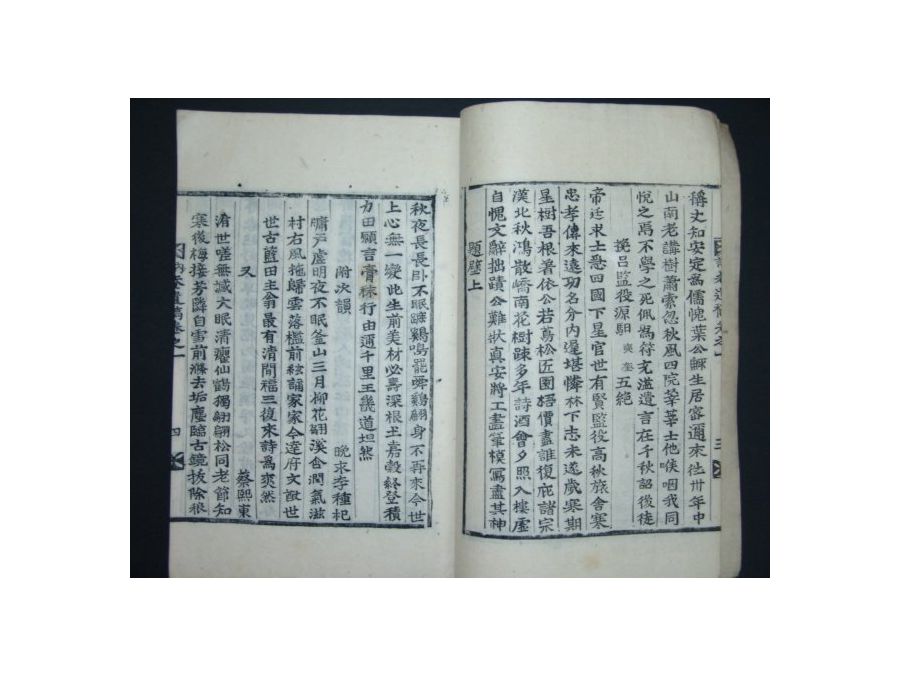 稱丈知安定為儒愧葉公龥生居密邇來徃卅年中
山南老講樹蕭索忽秋風四院莘莘士他候咽我同
悅之為不學之死佩為符尤滋遺言在千秋詔後徒
挽呂監役源馹 五絶
帝廷求士悉田國下星官世有賢監役高秋旅舍寒
忠孝傳來遠功名分內遲堪憐林下志未遂歲寒期
星樹吾根着依公若蔦松匠園梧價盡誰復庇諸宗
漢北秋鴻散嶠南花樹疎多年詩酒會夕照入樓虛
自愧文辭拙蹟公難狀真安將工畫筆模寫盡其神
題壁上
三
秋夜長長卧不眠蹠鷄鳴罷舜鷄翩身不再來今世
上心無一變此生前美材必壽深根土嘉穀終登積
力田願言膏秣行由通千里王畿道坦然
附次韻 晩求李種杞
牖戶虛明夜不眠釜山三月柳花翩溪舍潤氣滋
村右風拖歸雲落檻前絃誦家家今達府文誼世
世古藍田主翁最有清閒福三復來詩為爽然
又 蔡熙東
淆世嗟無試大眠清癯仙鶴獨翩翩松同老節知
寒後梅接芳隣自雪前滌去垢塵臨古鏡拔除狼
遺稿卷之一
四